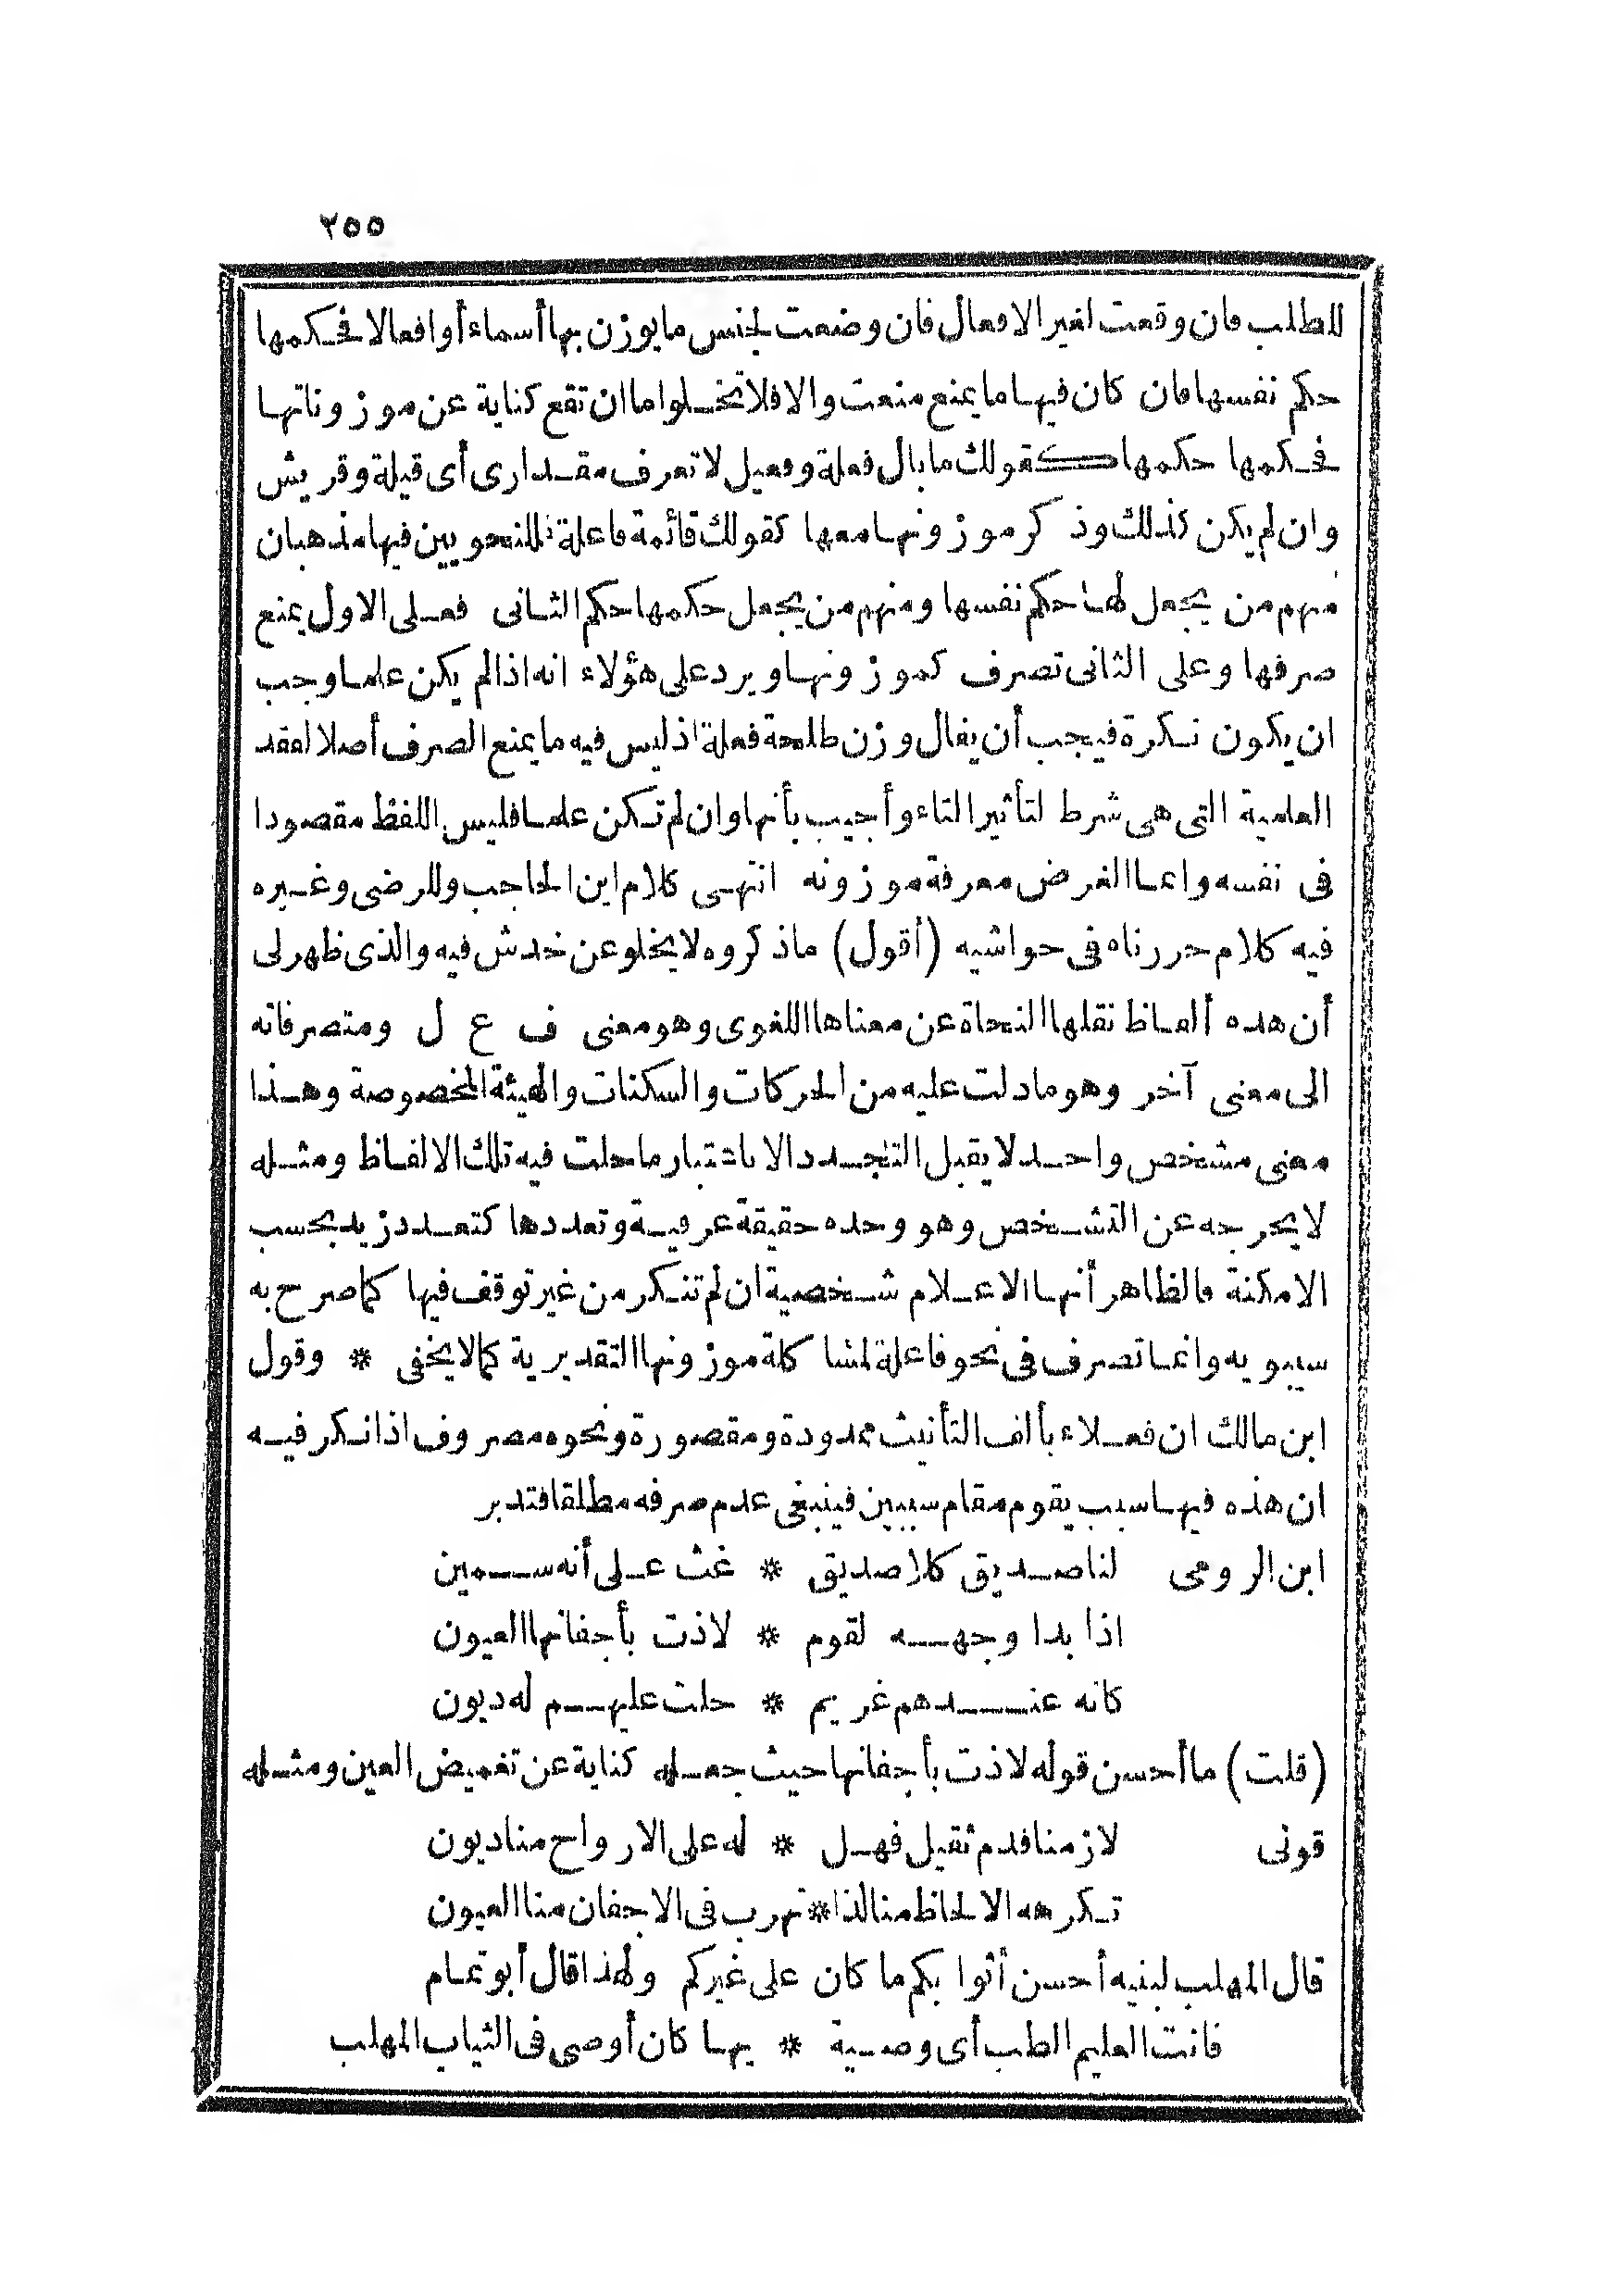 ٢٥٥
للطلب فان وقعت لغير الافعال فان وضعت لجنس ما يوزن بها أسماء أو افعالا فحكمها
حكم نفسها فان كان فيها ما يمنع منعت والا فلا تخلوا ما ان تقع كناية عن موزوناتها
فحكمها حكمها كقولك ما بال فعلة وفعيل لا تعرف مقدارى أى قيلة وقريش
وان لم يكن كذلك وذكر موزونها معها كقولك قائمة فاعلة فللنحويين فيها مذهبان
منهم من يجعل لها حكم نفسها ومنهم من يجعل حكمها حكم الثانى فعلى الاول يمنع
صرفها وعلى الثانى تصرف كموزونها ويرد على هؤلاء انه اذا لم يكن علما وجب
ان يكون نكرة فيجب أن يقال وزن طلحة فعلة اذ ليس فيه ما يمنع الصرف أصلا لفقد
العلمية التى هى شرط لتأثير التاء وأجيب بأنها وان لم تكن علما فليس اللفظ مقصودا
فى نفسه وانما الغرض معرفة موزونه انتهى كلام ابن الحاجب وللرضى وغيره
فيه كلام حررناه فى حواشيه (أقول) ماذكروه لا يخلو عن خدش فيه والذى ظهر لى
أن هذه ألفاظ نقلها النحاة عن معناها اللغوى وهو معنى ف ع ل ومتصرفاته
الى معنى آخر وهو مادلت عليه من الحركات والسكنات والهيئة المخصوصة وهذا
معنى مشخص واحد لا يقبل التجدد الا باعتبار ما حلت فيه تلك الالفاظ ومثله
لا يخرجه عن التشخص وهو وحده حقيقة عرفية وتعددها كتعدد زيد بحسب
الامكنة فالظاهر أنها الاعلام شخصية ان لم تنكر من غير توقف فيها كما صرح به
سيبويه وانما تصرف فى نحو فاعلة لمشاكلة موزونها التقديرية كما لا يخفى * وقول
ابن مالك ان فعلاء بألف التأنيث ممدودة ومقصورة ونحوه مصروف اذا نكر فيه
ان هذه فيها سبب يقوم مقام سببين فينبغى عدم صرفه مطلقا فتدبر
ابن الرومى لنا صديق كلا صديق * غث على أنه سمين
اذا بدا وجهه لقوم * لاذت بأجفانها العيون
كانه عندهم غريم * حلت عليهم له ديون
(قلت) ما أحسن قوله لاذت بأجفانها حيث جعله كناية عن تغميض العين ومثله
قونى لازمنا فدم ثقيل فهل * له على الارواح منا ديون
تكرهه الالحاظ منا لذا * تهرب فى الاجفان منا العيون
قال المهلب لبنيه أحسن أثوابكم ما كان على غيركم ولهذا قال أبو تمام
فانت العليم الطب أى وصية * بها كان أوصى فى الثياب المهلب